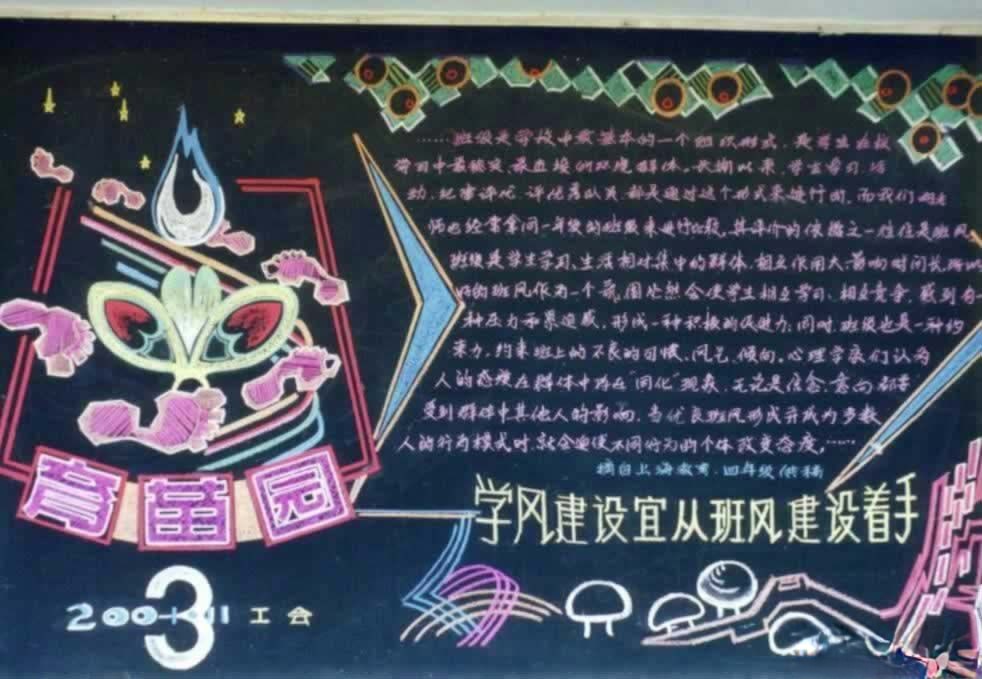 ……班级是学校中最基本的一个组织形式，是学生在校
学习中最接近的环境群体。长期以来，学生学习、活
动，比赛评优，都是通过这个形式来进行的，而我们
师也经常拿同一年级的班级来进行比较，其评价的依据之一往往是班风
班级是学生学习、生活相对集中的群体，相互作用大，影响时间长，
好的班风作为一个氛围必然会使学生相互学习、相互竞争，感到有一
种压力和紧迫感，形成一种积极的促进力；同时，班级也是一种约
束力，约束班上的不良的习惯、风气、倾向。心理学家们认为
人的态度在群体中存在“同化”现象，无论是信念、意向都要
受到群体中其他人的影响，当优良班风形成并成为多数
人的行为模式时，就会迫使不同行为的个体改变态度，……
摘自上海教育·四年级供稿
学风建设宜从班风建设着手
育苗园
3
200 11 工会